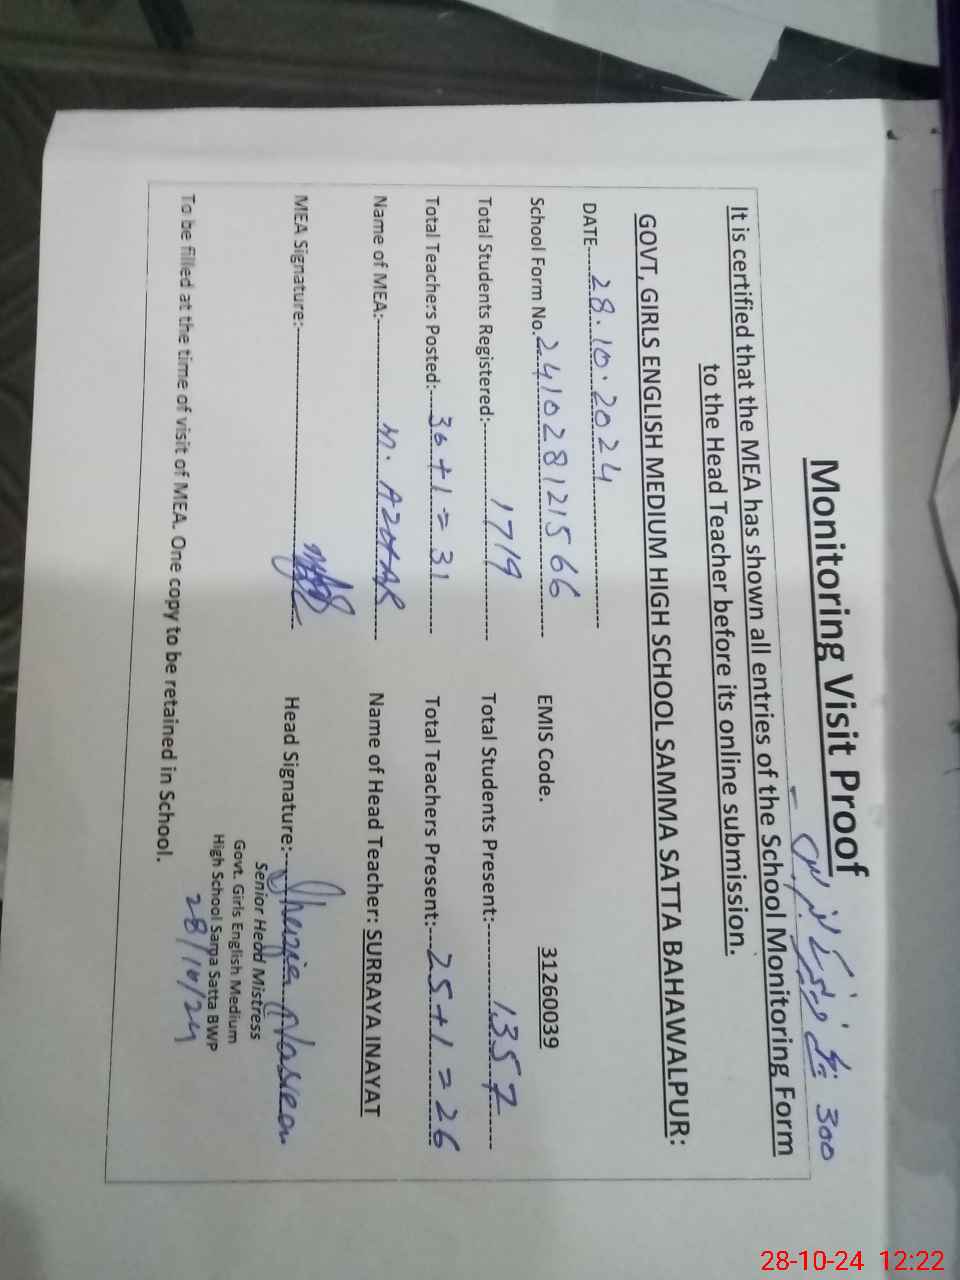 Monitoring Visit Proof
300
It is certified that the MEA has shown all entries of the School Monitoring Form
to the Head Teacher before its online submission.
GOVT, GIRLS ENGLISH MEDIUM HIGH SCHOOL SAMMA SATTA BAHAWALPUR:
DATE 28.10.2024
School Form No. 241028121566 EMIS Code. 31260039
Total Students Registered: 1719 Total Students Present: 1357
Total Teachers Posted: 30+1=31 Total Teachers Present: 25+1=26
Name of MEA: M. Name of Head Teacher: SURRAYA INAYAT
MEA Signature: Head Signature:
Senior Hedd Mistress
Govt. Girls English Medium
High School Sama Satta BWP
28/10/24
To be filled at the time of visit of MEA. One copy to be retained in School.
28-10-24 12:22